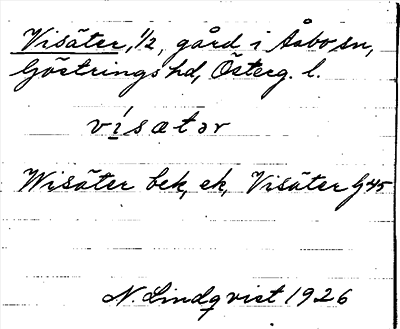 Visäter, 1/2, gård i Åsbo sn,
Göstrings hd, Österg. l.
vísætər
Wisäter bek, ek, Visäter G 45
N. Lindqvist 1926